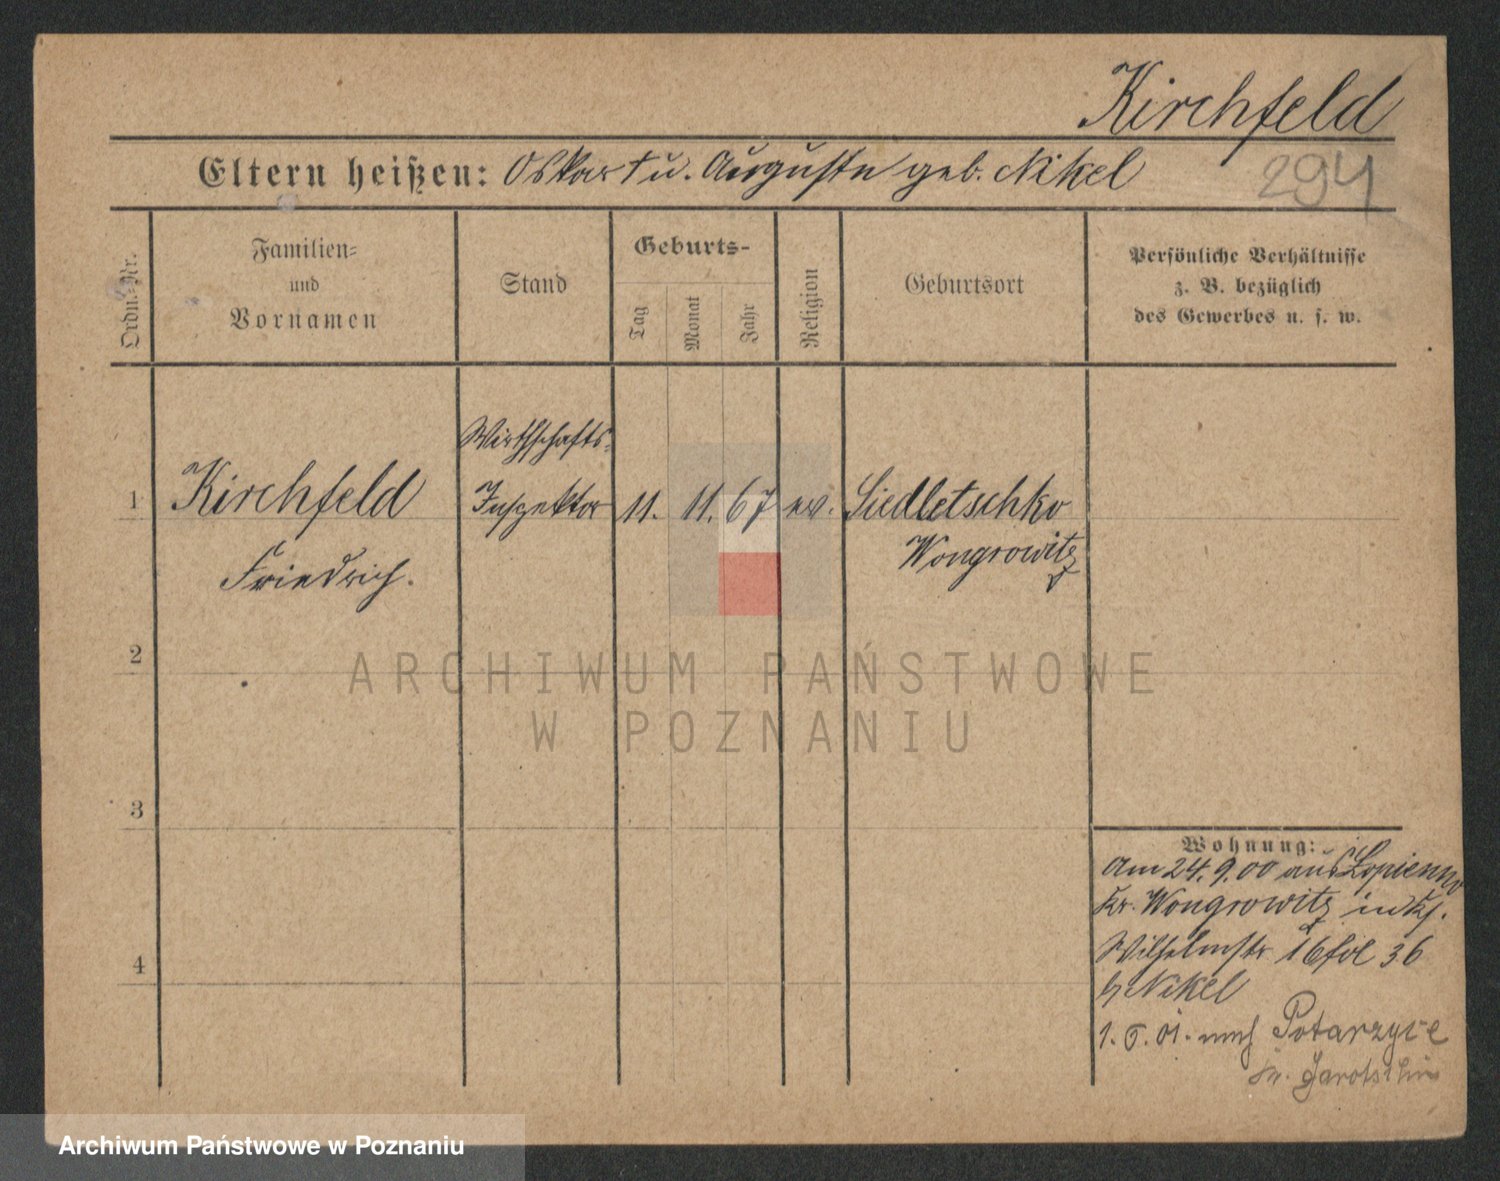 Kirchfeld
Eltern heißen: Oskar † u. Auguste geb. Nikel
294
Ordn.-Nr.
Familien-
und
Vornamen
Stand
Geburts-
Tag
Monat
Jahr
Religion
Geburtsort
Persönliche Verhältnisse
z. B. bezüglich
des Gewerbes u. s. w.
1
Kirchfeld
Friedrich.
Wirthschafts-
Inspektor
11. 11. 67 ev.
Siedletschko
Wongrowitz
2
3
4
Wohnung:
Am 24. 9. 00 aus Lopienno
Kr. Wongrowitz
Wilhelmstr 16 fol 36
b Nikel
1. 5. 01. nach Potarzyce
Kr. Jarotschin
ARCHIWUM PAŃSTWOWE
W POZNANIU
Archiwum Państwowe w Poznaniu